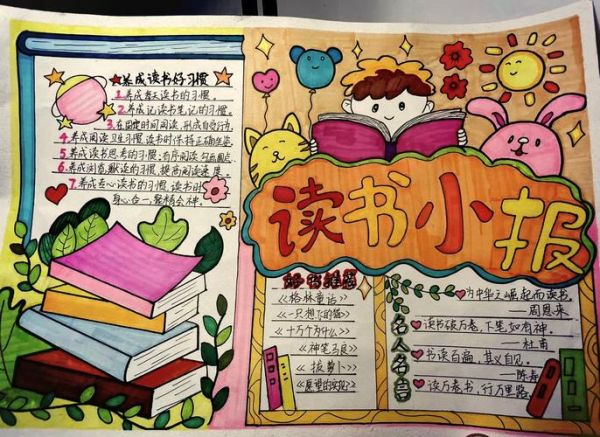 养成读书好习惯
1.养成每天读书的习惯。
2.养成记读书笔记的习惯。
3.在固定时间阅读,形成自觉行为
4.养成阅读卫生习惯 读书时保持正确坐姿
5.养成读书思考的习惯,有序阅读 勾画圈点
6.养成浏览、默读的习惯,提高阅读速度
7.养成专心读书的习惯,读书时
身心合一,聚精会神。
读书小报
好书推荐
《格林童话》
《十万个为什么》
《神笔马良》
《拔萝卜》
名人名言
为中华之崛起而读书。
——周恩来
读书破万卷,下笔如有神。
——杜甫
书读百遍,其义自见。
——陈寿
读万卷书,行万里路。